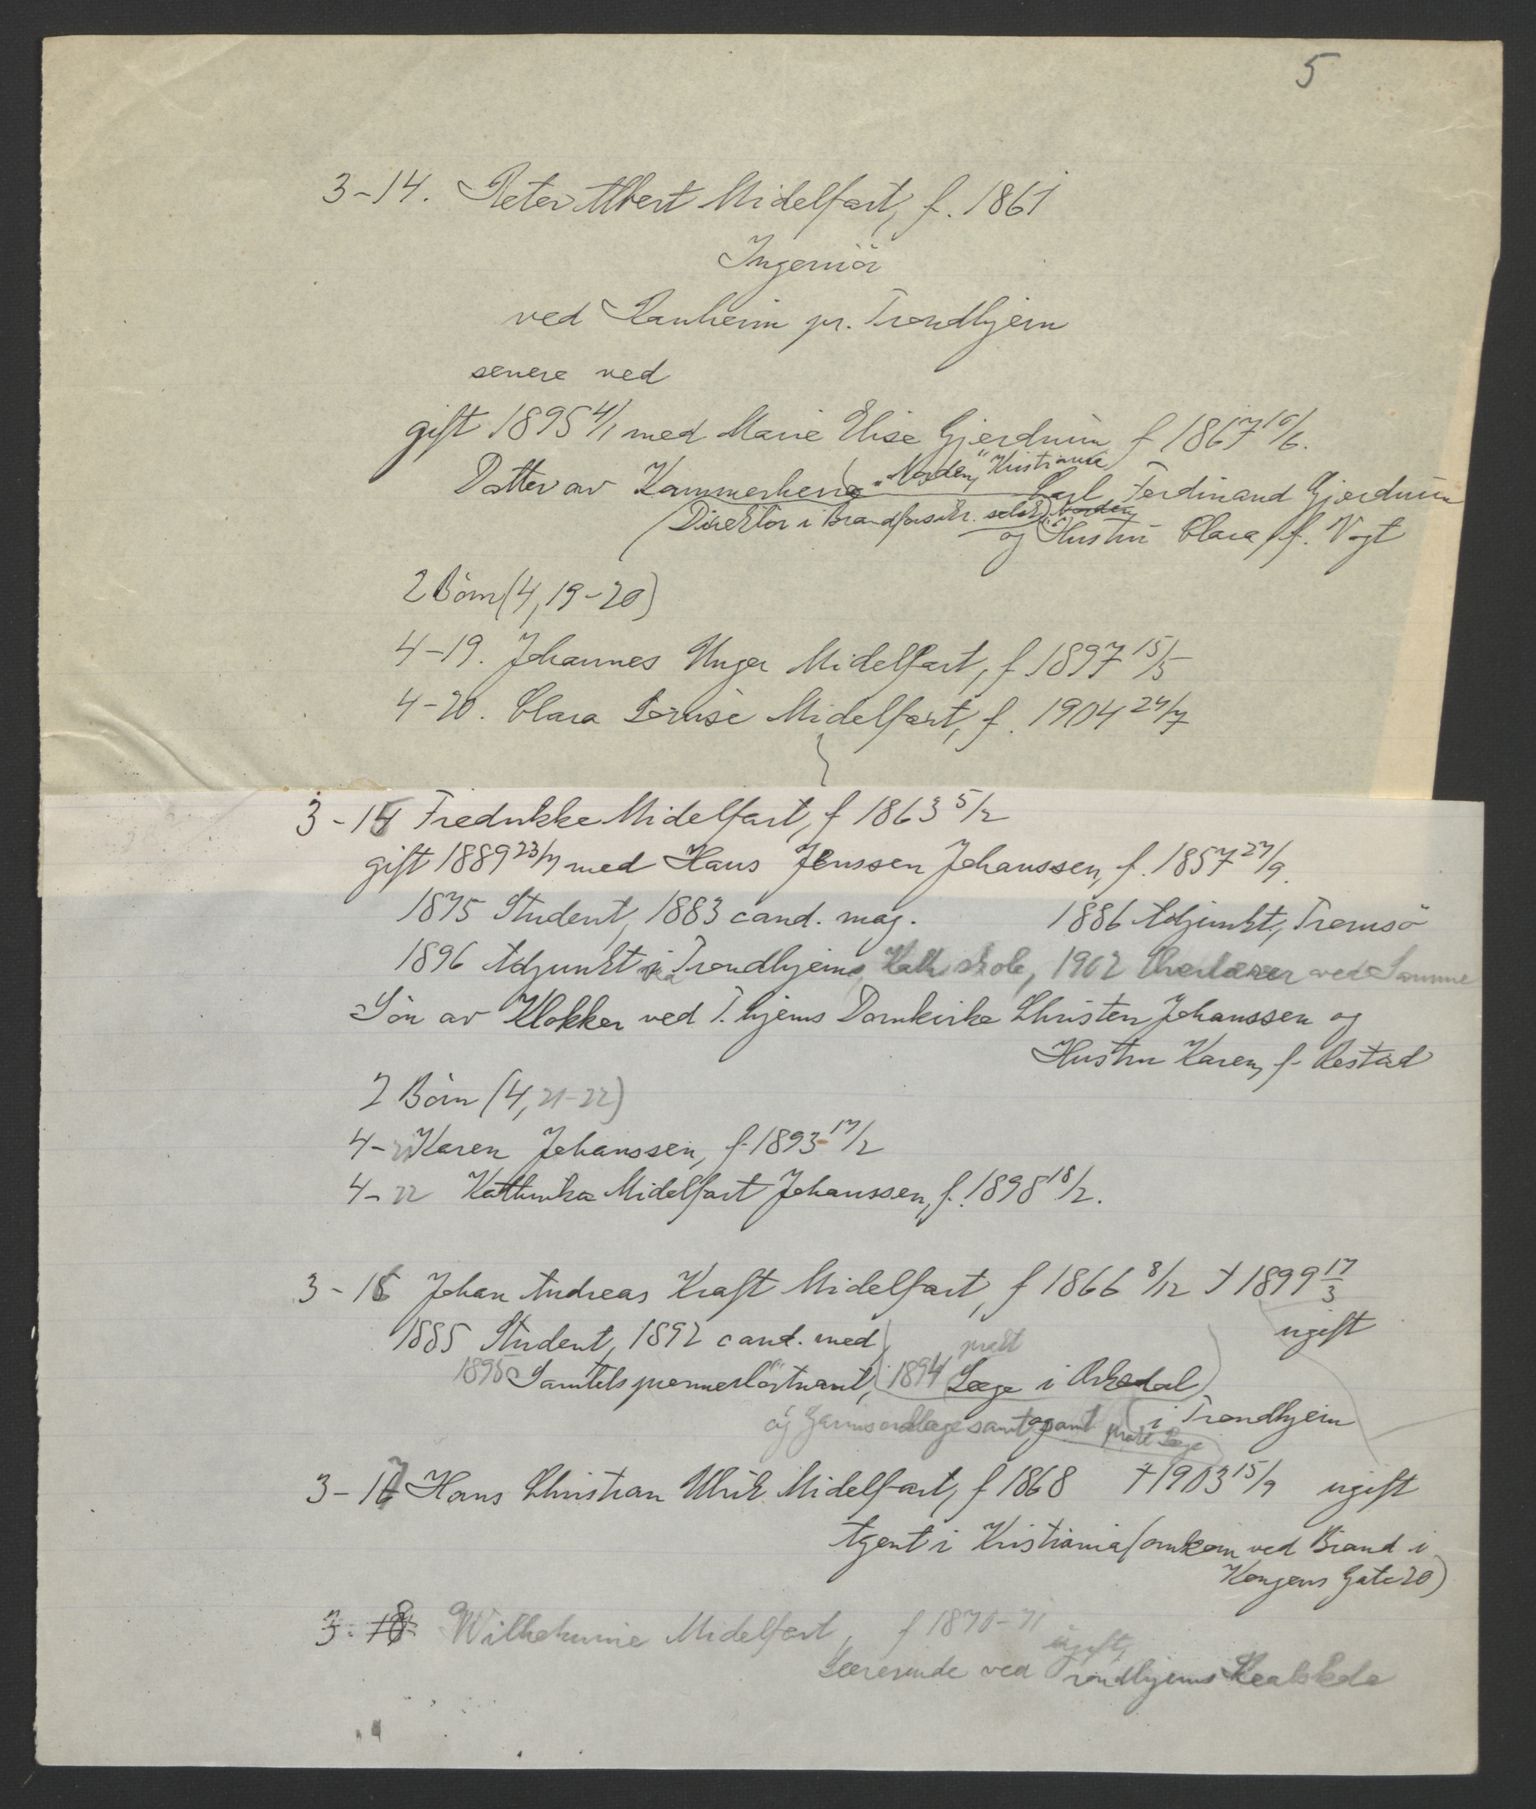 5
3-14. Peter Albert Midelfart, f. 1861
Ingeniör
ved Ranheim pr. Trondhjem
senere ved
gift 1895 4/1 med Marie Elise Gjerdrum f 1867 10/6.
"Norden" Kristiania
Datter av Kammerherre Carl Ferdinand Gjerdrum
(Direktör i Brandforsikr. selsk. Norden)
og Hustru Clara, f. Vogt
2 Börn (4, 19-20)
4-19. Johannes Unger Midelfart, f. 1897 15/5
4-20. Clara Lovise Midelfart, f. 1904 24/7
3-15 Fredrikke Midelfart, f 1863 5/2
gift 1889 23/7 med Hans Jenssen Johanssen, f. 1857 27/9.
1875 Student, 1883 cand. mag. 1886 Adjunkt, Tromsö
1896 Adjunkt ved Trondhjems Kath skole, 1902 Overlærer ved Samme
Sön av Klokker ved T.hjems Domkirke Christen Johanssen og
Hustru Karen, f. Restad
2 Börn (4, 21-22)
4-21 Karen Johanssen, f. 1893 17/2
4-22 Kathinka Midelfart Johanssen, f. 1898 18/2.
3-16 Johan Andreas Kraft Midelfart, f 1866 8/12 † 1899 17/3
ugift
1885 Student, 1892 cand. med
prakt
1895 Sanitetspremierlöitnant, 1894 Læge i Orkedal
og samt prakt Læge i Trondhjem
3-17 Hans Christian Ulrik Midelfart, f 1868 † 1903 15/9 ugift
Agent i Kristiania (omkom ved Brand i
Kongens Gate 20)
3-18 Wilhelmine Midelfart, f 1870-71
ugift,
Lærerinde ved Trondhjems Realskole